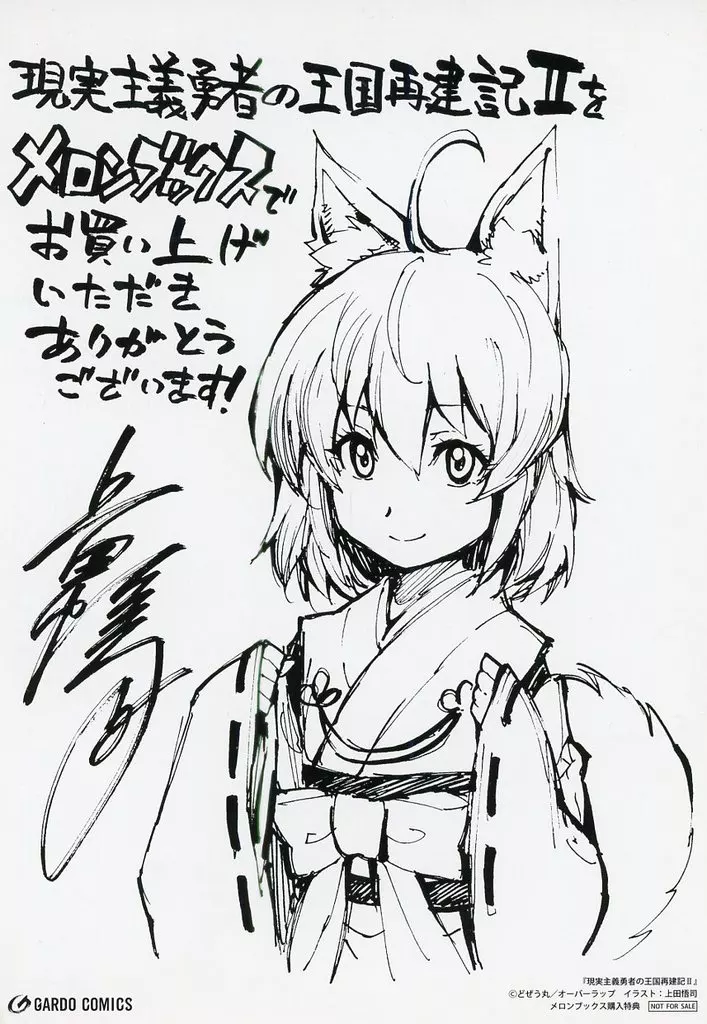 現実主義勇者の王国再建記Ⅱを
メロンブックスで
お買い上げ
いただき
ありがとう
ございます!
GARDO COMICS
『現実主義勇者の王国再建記Ⅱ』
©どぜう丸/オーバーラップ イラスト:上田悟司
メロンブックス購入特典 NOT FOR SALE